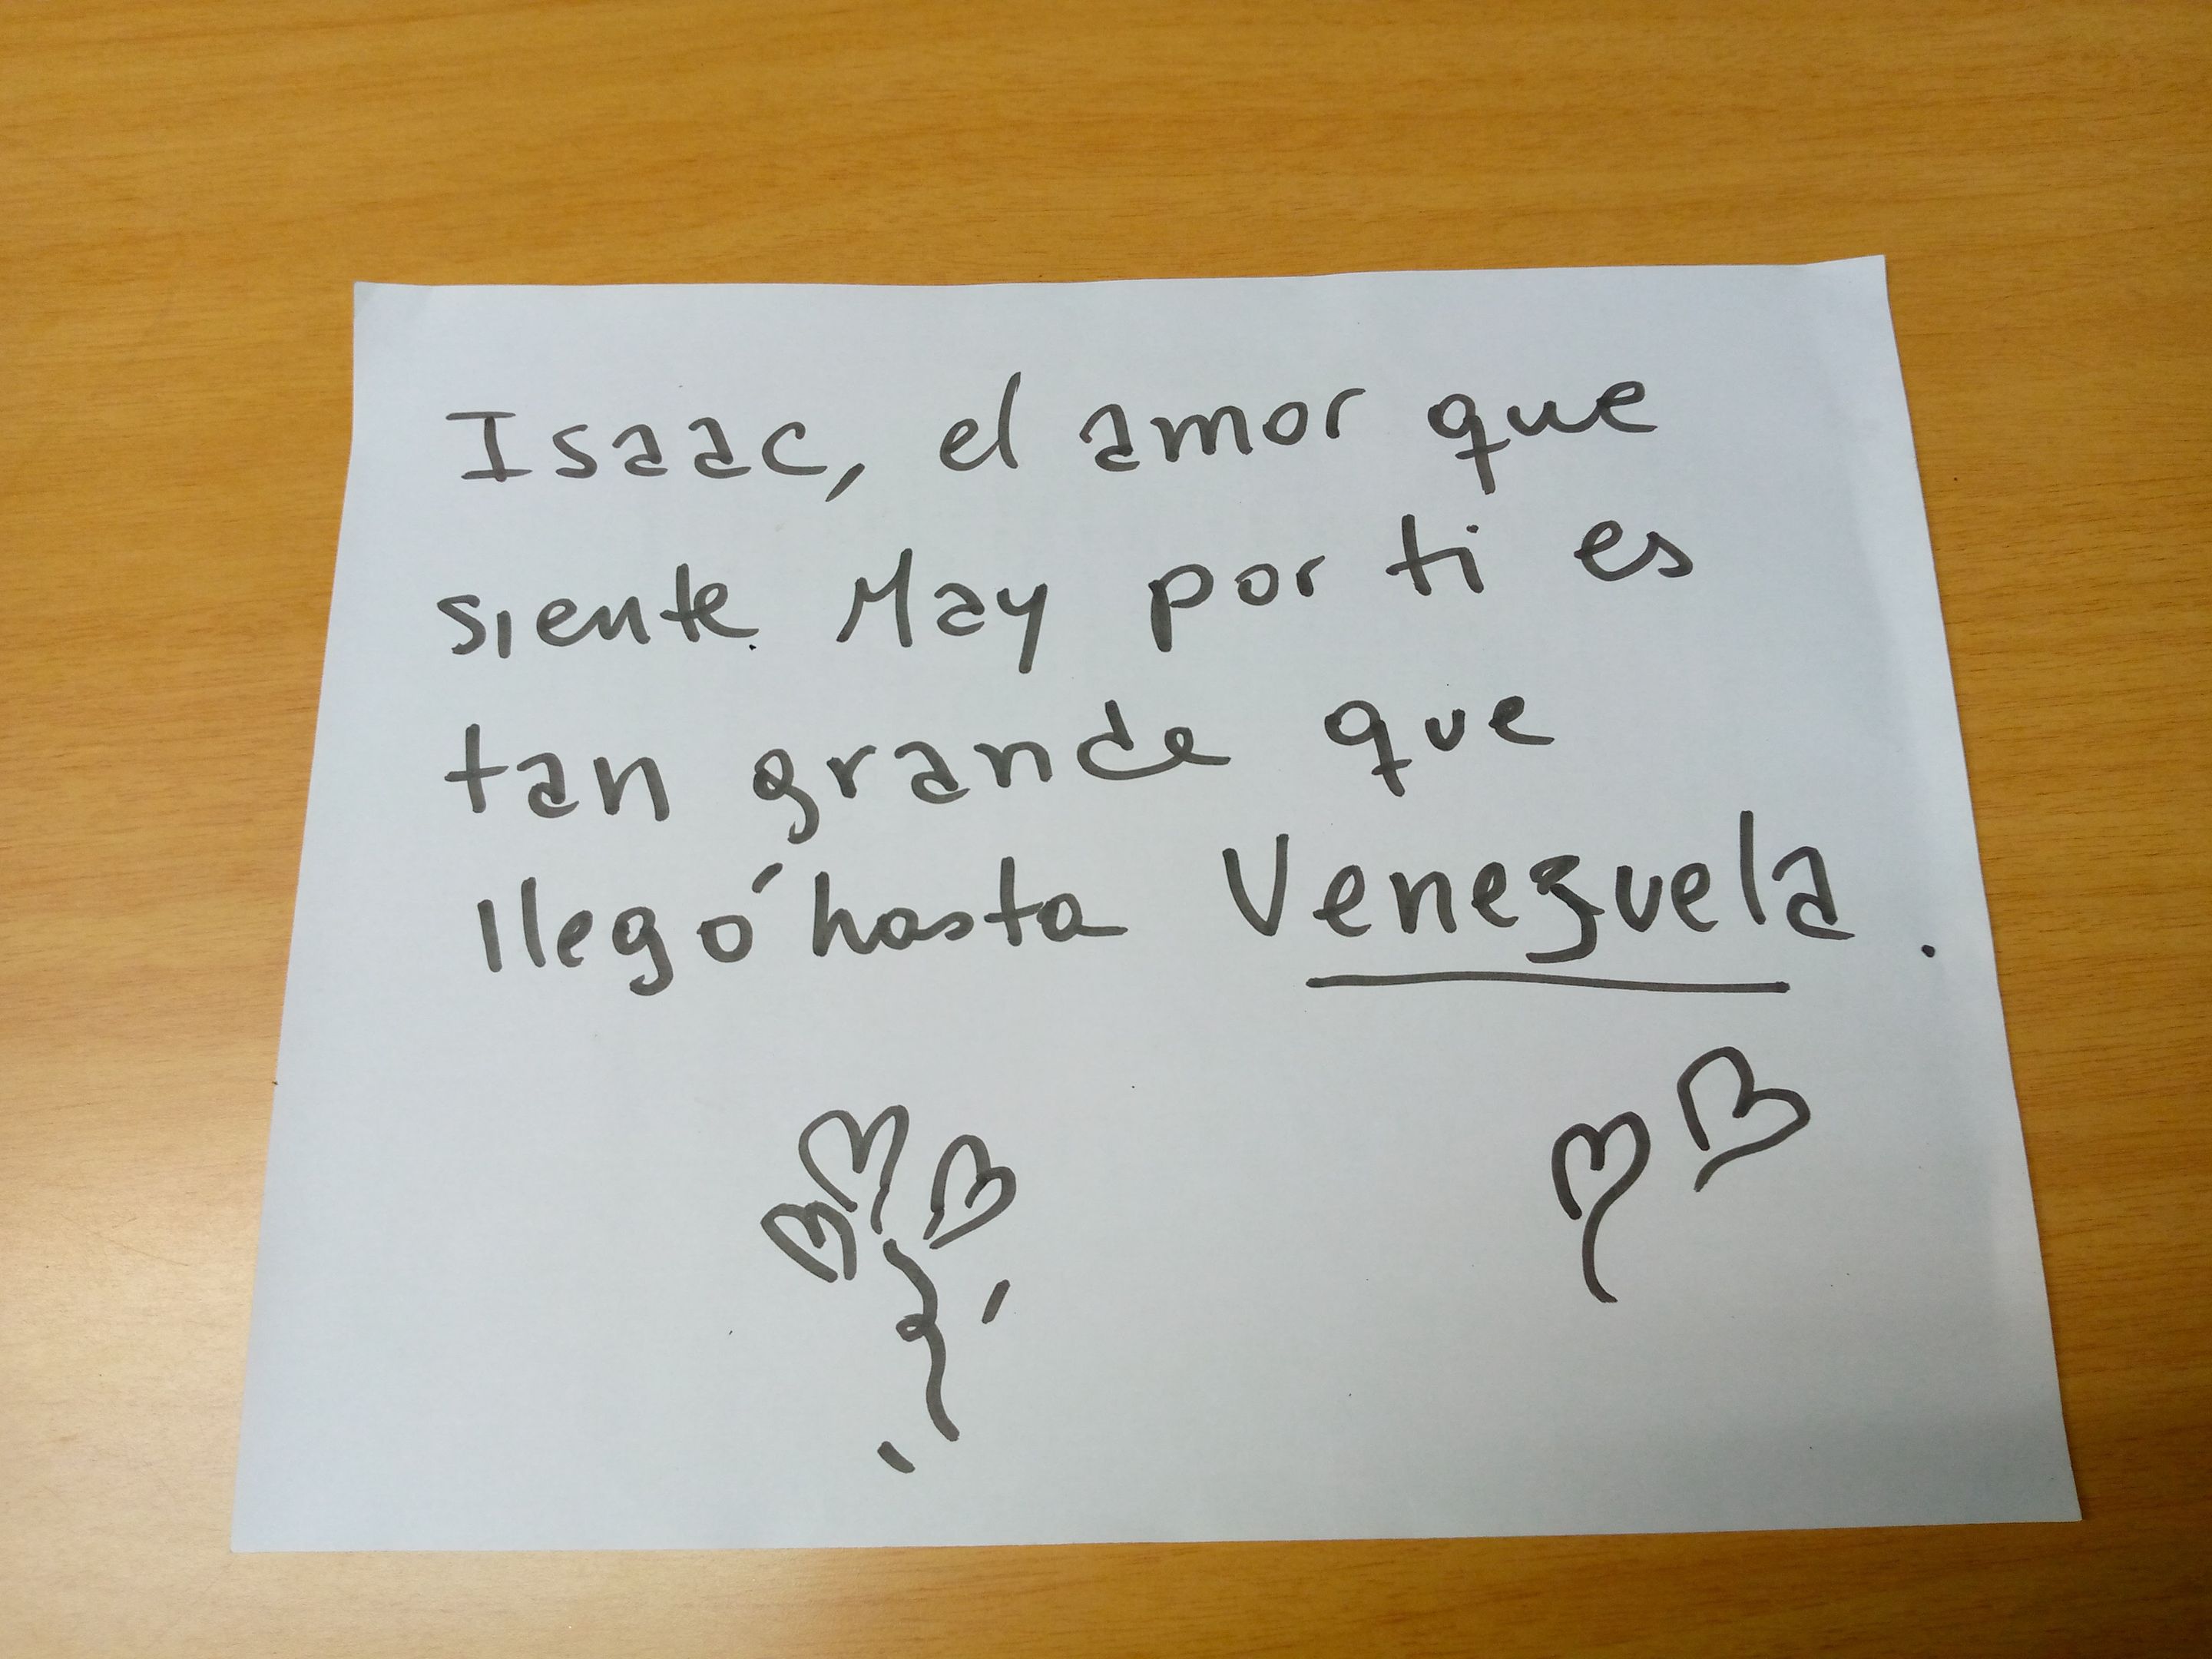 Isaac, el amor que
siente May por ti es
tan grande que
llegó hasta Venezuela.